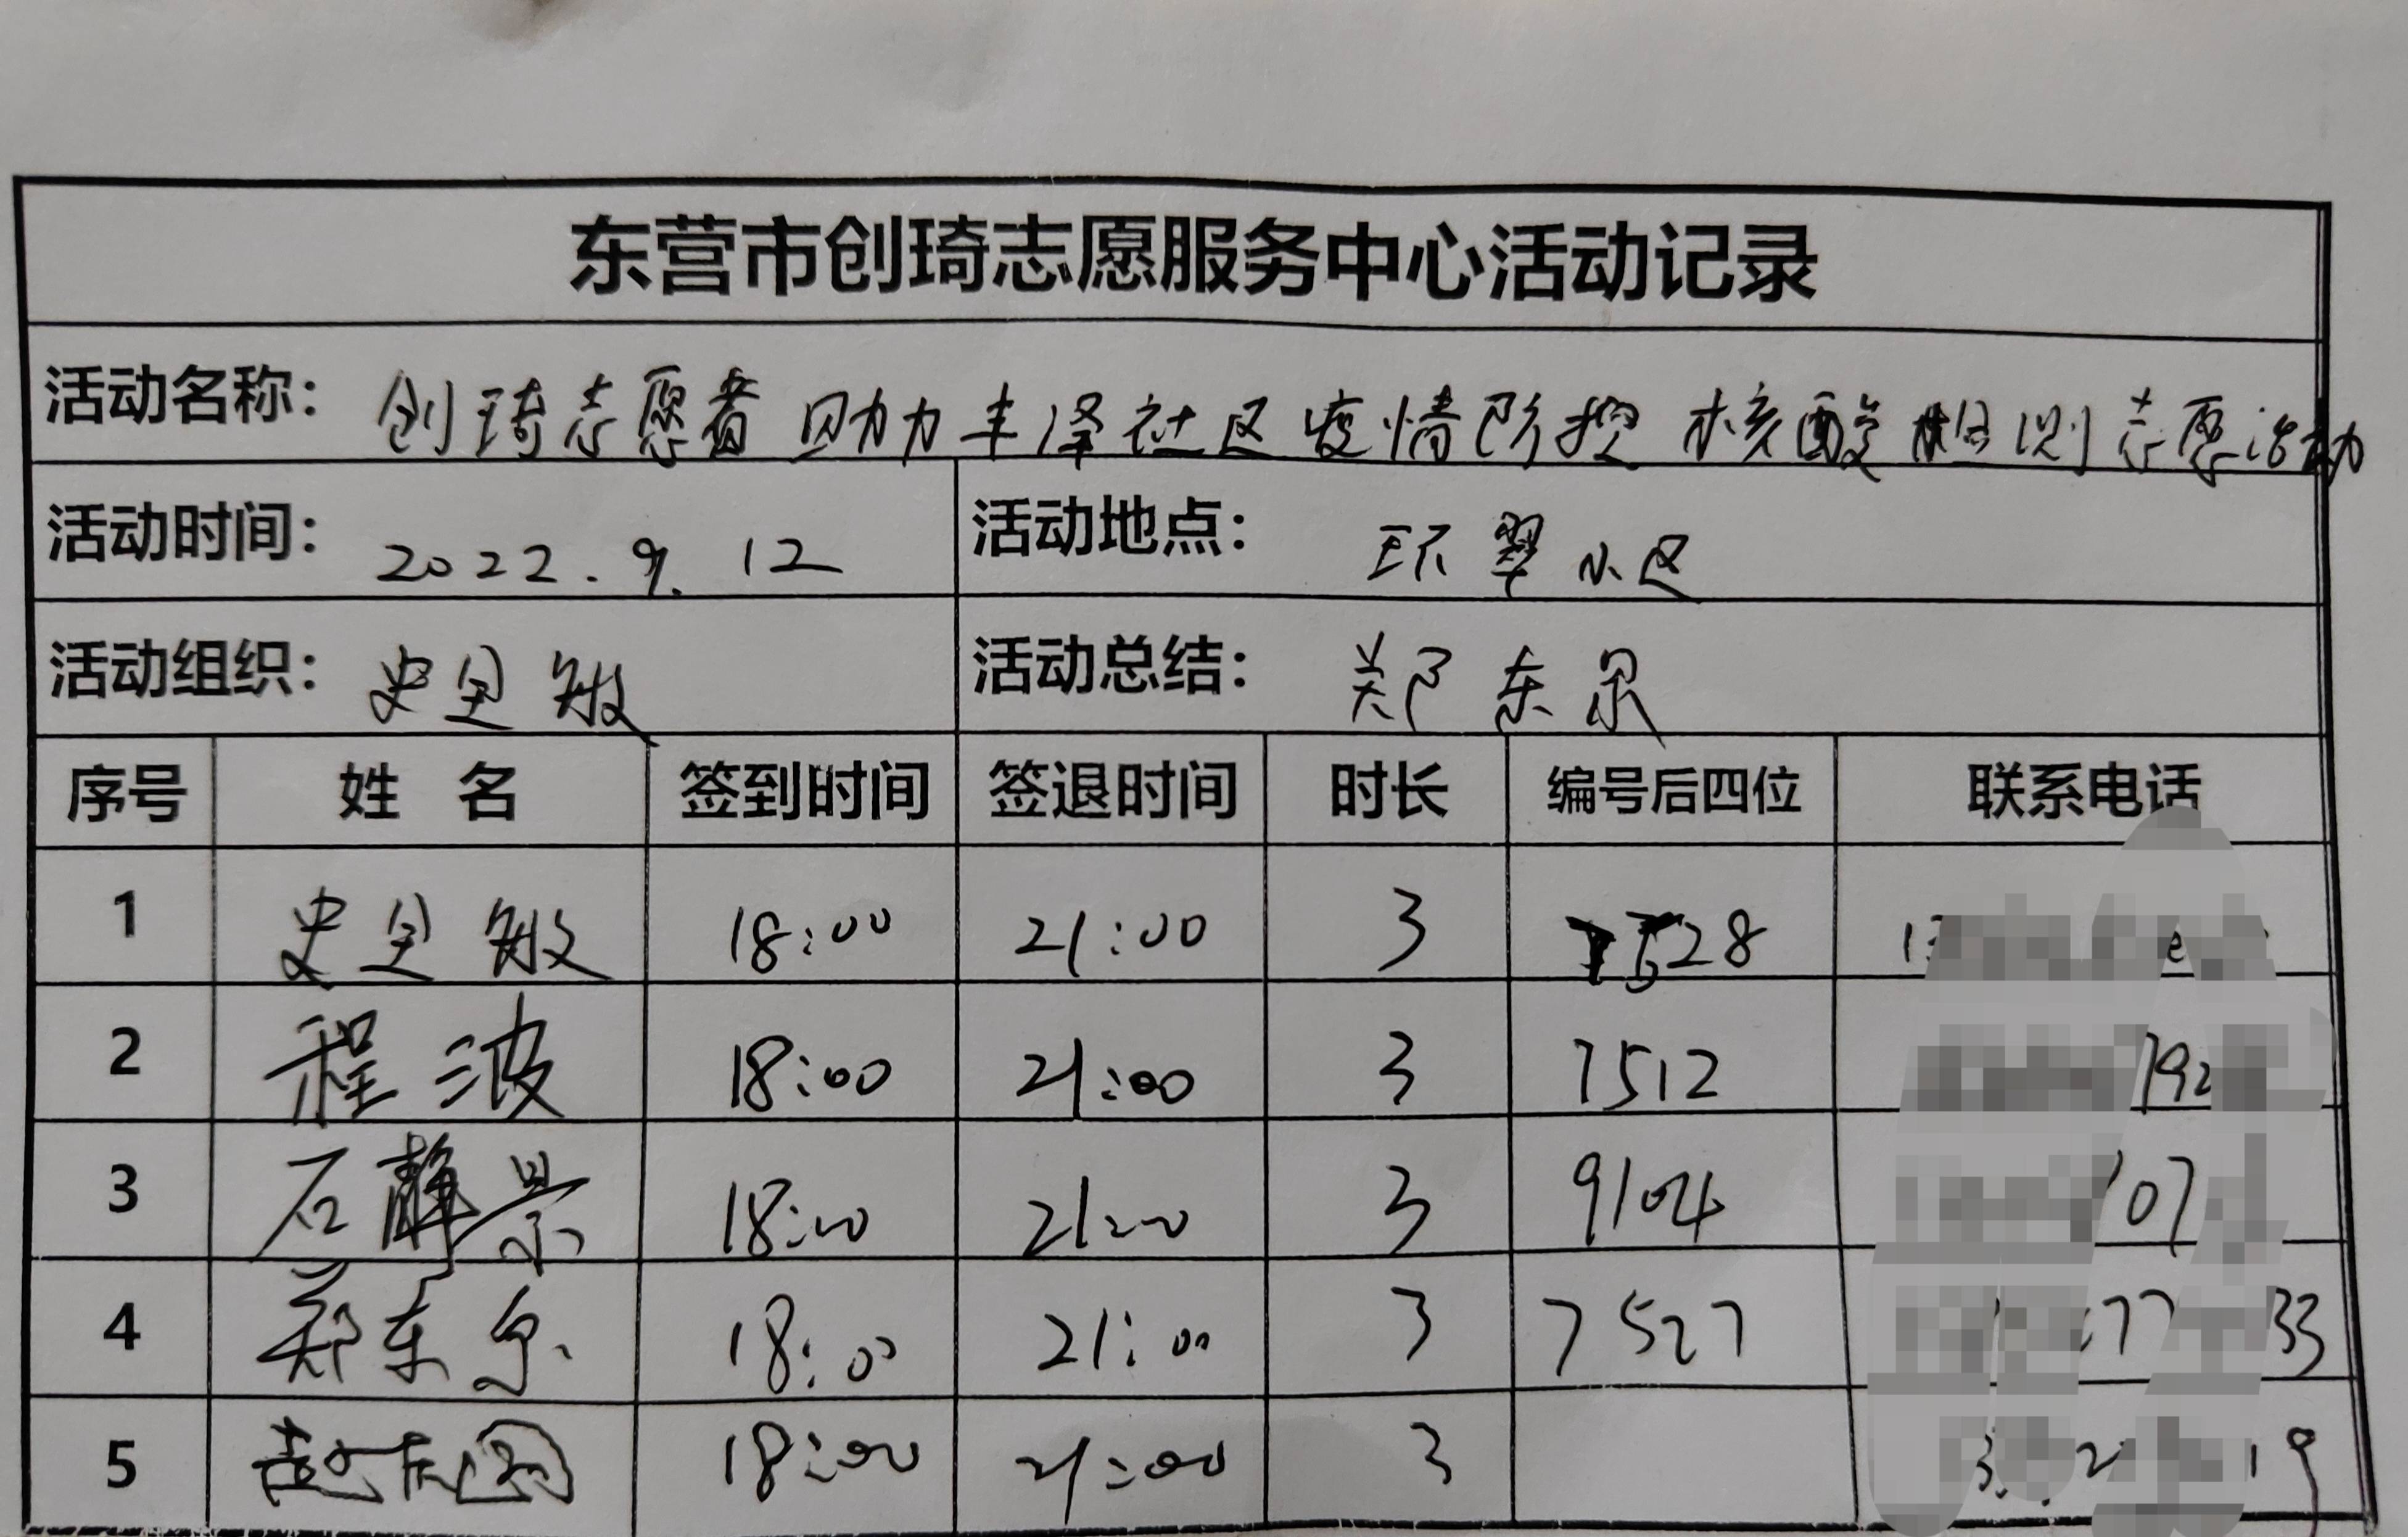 东营市创琦志愿服务中心活动记录
活动名称： 创琦志愿者助力丰泽社区疫情防控核酸检测志愿活动
活动时间： 2022.9.12 活动地点： 环翠小区
活动组织： 史呈敏 活动总结： 郑东泉
序号 姓名 签到时间 签退时间 时长 编号后四位 联系电话
1 史呈敏 18:00 21:00 3 7528
2 程波 18:00 21:00 3 7512
3 石静景 18:00 21:00 3 9104
4 郑东泉 18:00 21:00 3 7527
5 赵 18:00 21:00 3